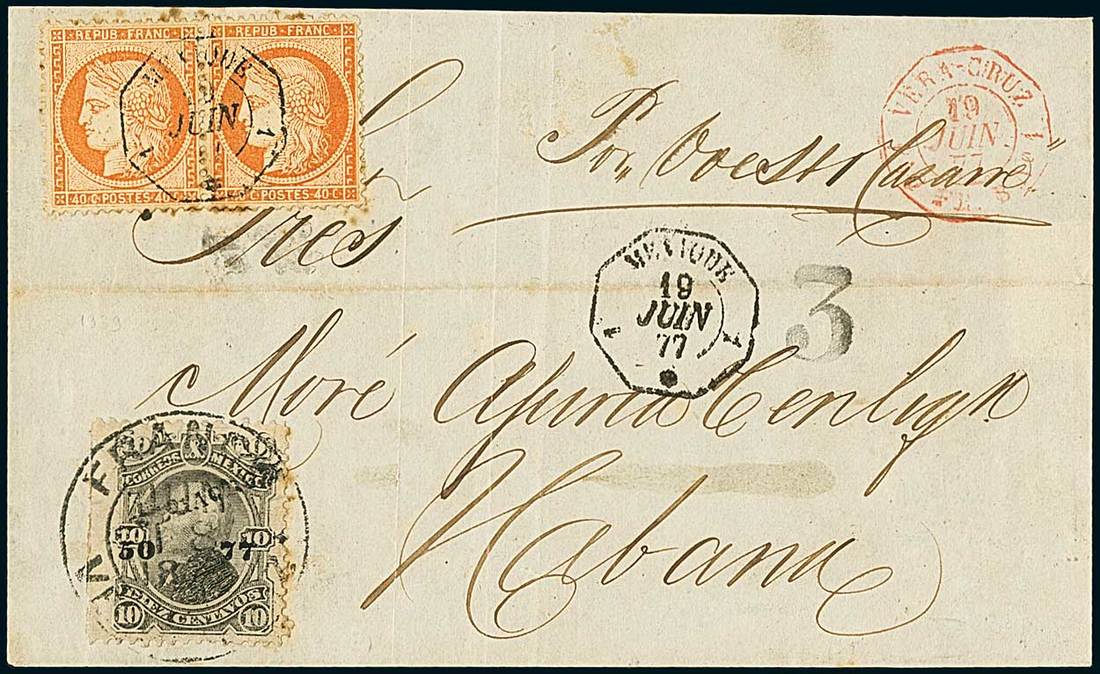 REPUB · FRANC · REPUB · FRANC ·
40 C · POSTES · 40 C 40 C · POSTES · 40 C
MEXIQUE
JUIN
1
VERA-CRUZ
19
JUIN
77
1
Por
Sres
MEXIQUE
19
JUIN
77
3
1339
Moré Ajuria
Habana
FRANCO
CORREOS MEXICO
10 10
50 77
DIEZ CENTAVOS
10 10